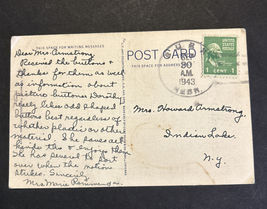 THIS SPACE FOR WRITING MESSAGES
Dear Mrs. Armstrong,
Received the buttons &
thanks for them as well
as information about
picture buttons. Dorothy
really likes odd shaped
buttons best regardless of
whether plastic or other
material. She
this & enjoys them
She has several to sort
over when the notion
strikes. Sincerely
Mrs. Marie
POST CARD
THIS SPACE FOR ADDRESS
30
AM
1943
NEBR.
UNITED STATES
POSTAGE
1 CENT 1
Mrs. Howard Armstrong,
Indian Lake,
N.Y.